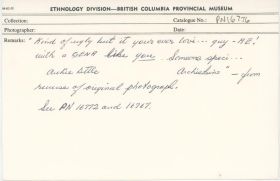 ETHNOLOGY DIVISION—BRITISH COLUMBIA PROVINCIAL MUSEUM
Collection: Catalogue No.: PN16776
Photographer: Date:
Remarks: "Kind of ugly but it your ever love... guy - ME!
with a like you. Someone speci...
— from
reverse of original photograph.
See PN 16772 and 16767.